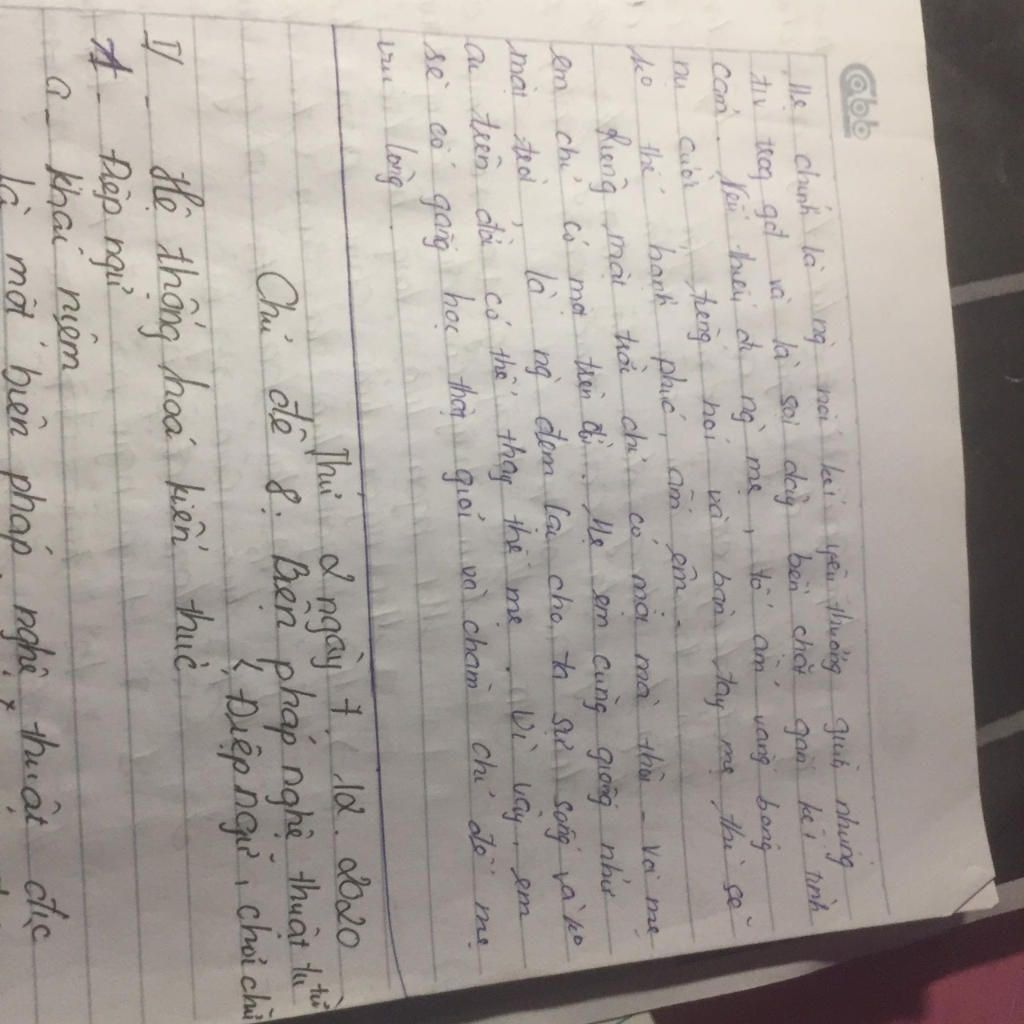 Cabb
Mẹ chính là ng nối kết yêu thương giữa những
tiv trog gđ và là sợi dây bền chặt gắn kết tình
cảm. Nếu thiếu đi ng mẹ, tổ ấm vắng bong
nụ cười, tiếng nói và bàn tay mẹ thì sẽ
ko thể hạnh phúc, ấm êm.
Dường mặt trời chỉ có một mà thôi - và mẹ
em chỉ có một trên đời. Mẹ em cũng giống như
mặt trời, là ng đem lại cho ta sự sống và ko
ai trên đời có thể thay thế mẹ. Vì vậy, em
sẽ cố gắng học thật giỏi và chăm chỉ để mẹ
vui lòng
Thứ 2 ngày 7.12.2020
Chủ đề 8: Biện pháp nghệ thuật tu từ
( Điệp ngữ, chơi chữ
I/ - Hệ thống hoá kiến thức
A - Điệp ngữ
a - khái niệm
là một biện pháp nghệ thuật đực